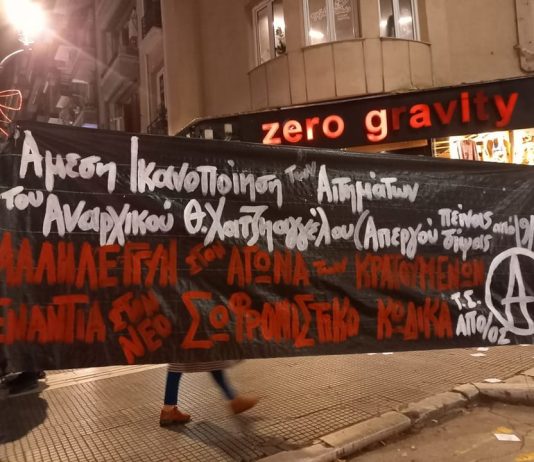 zero gravity
Άμεση Ικανοποίηση των Αιτημάτων
του Αναρχικού Θ. Χατζηαγγέλου (Απεργού πείνας δίψας από 19/
ΑΛΛΗΛΕΓΓΥΗ στον ΑΓΩΝΑ των ΚΡΑΤΟΥΜΕΝΩΝ
ΕΝΑΝΤΙΑ στον ΝΕΟ ΣΩΦΡΟΝΙΣΤΙΚΟ ΚΩΔΙΚΑ Τ.Σ. ΑΠΟ/ΟΣ
A